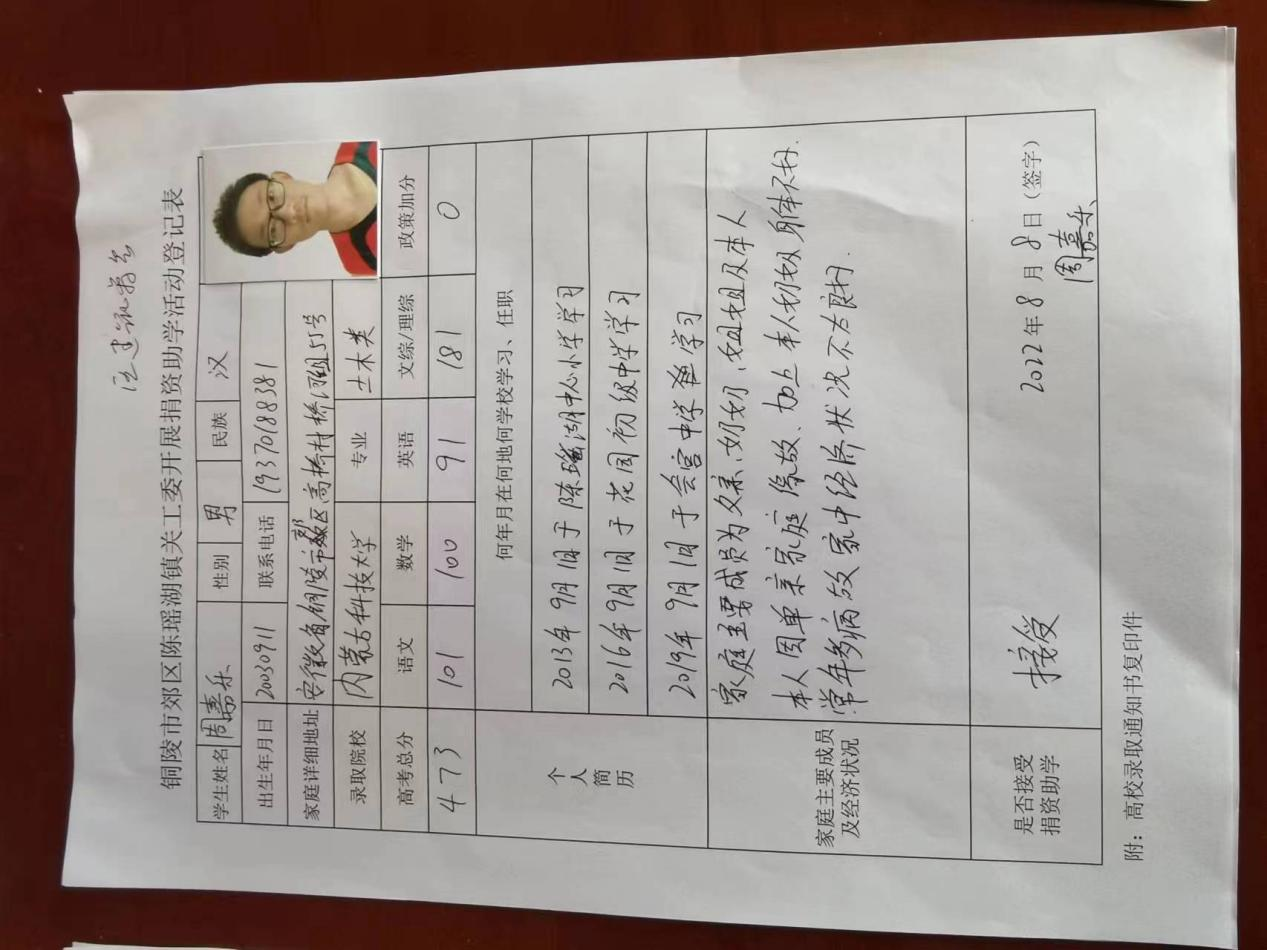 铜陵市郊区陈瑶湖镇关工委开展捐资助学活动登记表
学生姓名 周嘉乐 性别 男 民族 汉
出生年月日 20030911 联系电话 19370188381
家庭详细地址 安徽省铜陵市郊区高桥村桥河组55号
录取院校 内蒙古科技大学 专业 土木类
高考总分 语文 数学 英语 文综/理综 政策加分
473 101 100 91 181 0
个人简历
何年月在何地何学校学习、任职
2013年9月1日于陈瑶湖中心小学学习
2016年9月1日于花园初级中学学习
2019年9月1日于会宫中学学习
家庭主要成员及经济状况
家庭主要成员为父亲、奶奶、姐姐及本人
本人因单亲家庭缘故、加上本人奶奶身体不好.
常年多病故家中经济状况不太良好.
是否接受捐资助学
接受
2022年8月8日(签字)
周嘉乐
附：高校录取通知书复印件